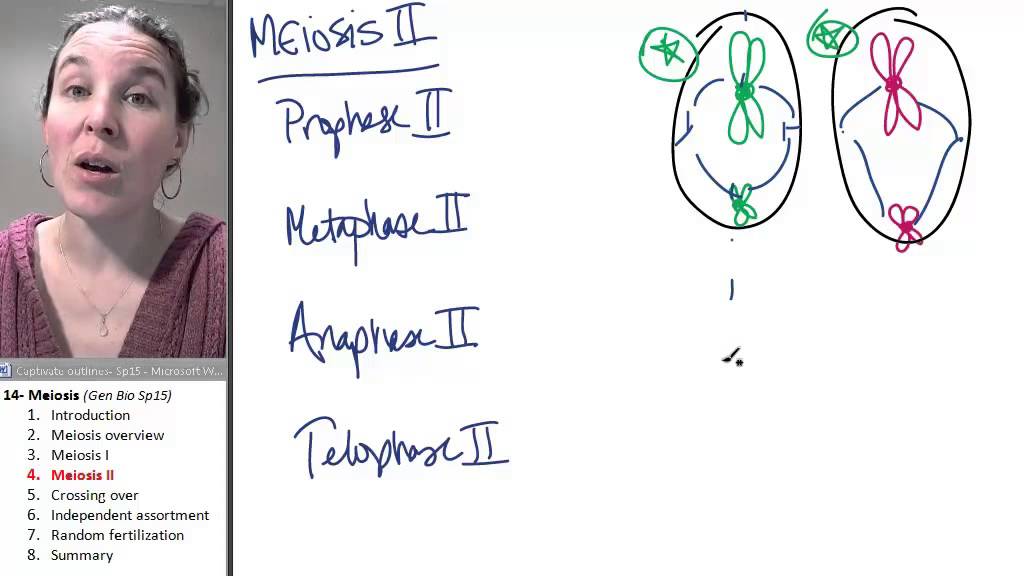 MEiosis II
Prophase II
Metaphase II
Anaphase II
Telophase II
Captivate outlines- Sp15 - Microsoft W...
14- Meiosis (Gen Bio Sp15)
1. Introduction
2. Meiosis overview
3. Meiosis I
4. Meiosis II
5. Crossing over
6. Independent assortment
7. Random fertilization
8. Summary